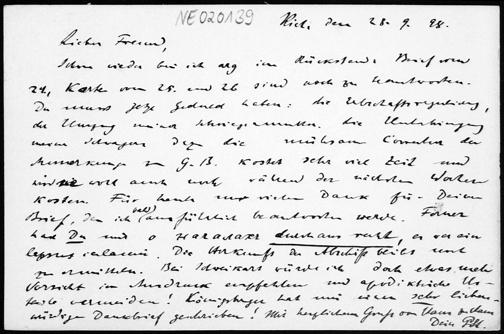 NE020139
Kiel, den 28. 9. 98.
Lieber Freund,
Schon wieder bin ich arg im Rückstande. Brief vom
24, Karte vom 25. und 26 sind noch zu beantworten.
Du musst jetzt Geduld haben: die Erbschaftsregulierung,
der Umzug meiner Schwiegermutter, die Unterbringung
meines Schwagers. Dazu die mühsam Correctur der
Anmerkungen zu G.B. kostet sehr viel Zeit und
wird wohl auch noch während der nächsten Wochen
kosten. Für heute nur vielen Dank für Deinen
Brief, den ich ausführlich beantworten werde. Ferner
hast Du mit durchaus recht, es war ein
lapsus calami. Die Herkunft der Abschrift bleibt noch
zu ermitteln. Bei würde ich doch etwas mehr
Vorsicht im Ausdruck empfehlen und apodiktische Ur-
teile vermeiden! hat mir einen sehr liebens-
würdigen Dankbrief geschrieben! Mit herzlichem Gruss von Haus zu Haus
Dein